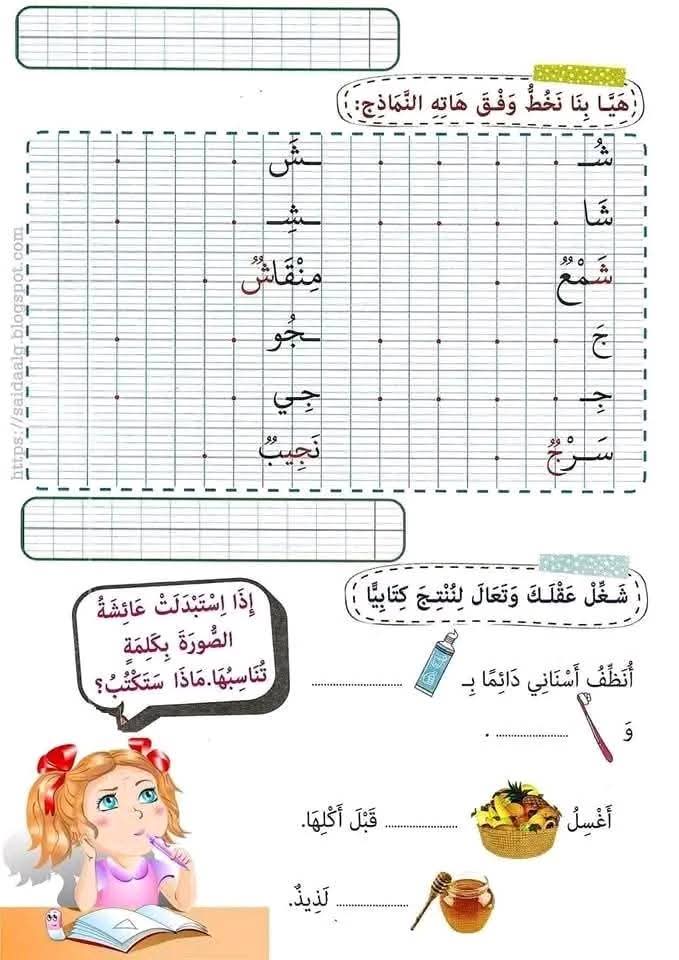 هَيَّـا بِنَا نَخُطُّ وَفْـقَ هَاتِهِ النَّمَاذِجِ:
شُـ ـشَ
شَا ـشِـ
شَمْعٌ مِنْقَاشٌ
جَ ـجُو
جِـ جِـي
سَـرْجٌ نَجِيبٌ
https://saidaalg.blogspot.com
شَـغِّلْ عَقْلَـكَ وَتَعَالَ لِنُنْتِـجَ كِتَابِيًّا
إِذَا اِسْتَبْدَلَتْ عَائِشَةُ
الصُّورَةَ بِكَلِمَةٍ
تُنَاسِبُهَا.مَاذَا سَتَكْتُبُ؟
أُنَظِّفُ أَسْنَانِي دَائِمًا بِـ ......................
وَ .................. .
أَغْسِلُ .................. قَبْلَ أَكْلِهَا.
.................. لَذِيذٌ.